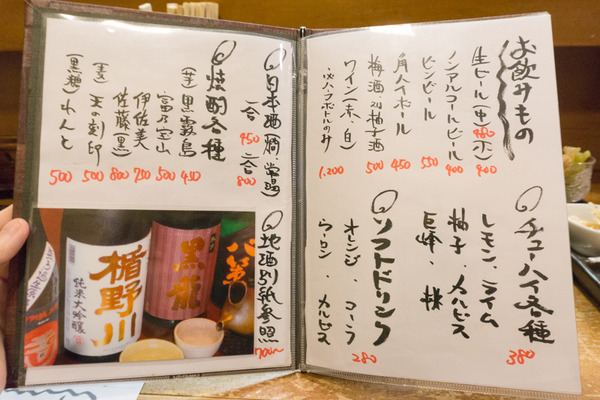 お飲みもの
生ビール(中)480(小)400
ノンアルコールビール 400
ビンビール 550
角ハイボール 450
梅酒 ゆず酒 500
ワイン(赤、白)
※ハーフボトルのみ 1,200
チューハイ各種 380
レモン、ライム
柚子、カルピス
巨峰、
ソフトドリンク 280
オレンジ、コーラ
ウーロン、カルピス
日本酒(燗、常温)
一合 450 二合 800
地酒別紙参照 700〜
焼酎各種
(芋)黒霧島 450
富乃宝山 500
伊佐美 750
佐藤(黒) 800
(麦)天の刻印 500
(黒糖)れんと 500
楯野川
純米大吟醸
黒龍